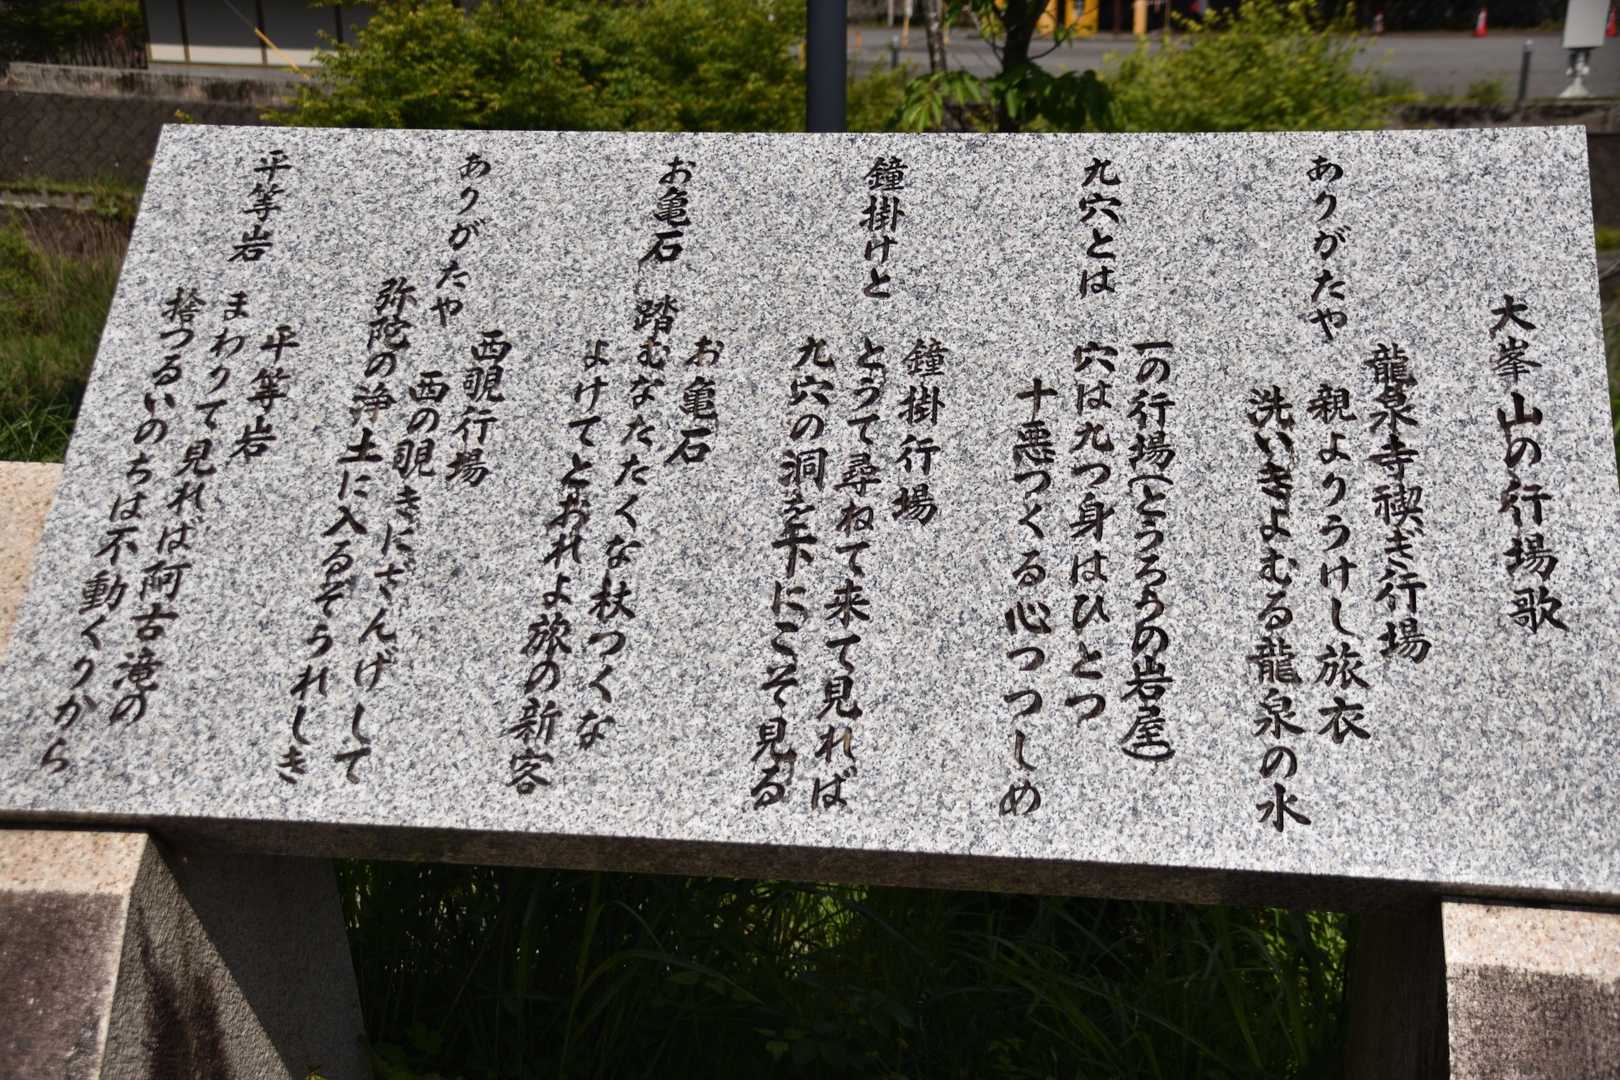 大峯山の行場歌
龍泉寺禊ぎ行場
ありがたや 親よりうけし旅衣
洗いきよむる龍泉の水
一の行場(とうろうの岩屋)
九穴とは 穴は九つ身はひとつ
十悪つくる心つつしめ
鐘掛行場
鐘掛けと とうて尋ねて来て見れば
九穴の洞を下にこそ見る
お亀石
お亀石 踏むなたたくな杖つくな
よけてとおれよ旅の新客
西覗行場
ありがたや 西の覗きにざんげして
弥陀の浄土に入るぞうれしき
平等岩
平等岩 まわりて見れば阿古滝の
捨つるいのちは不動くりから